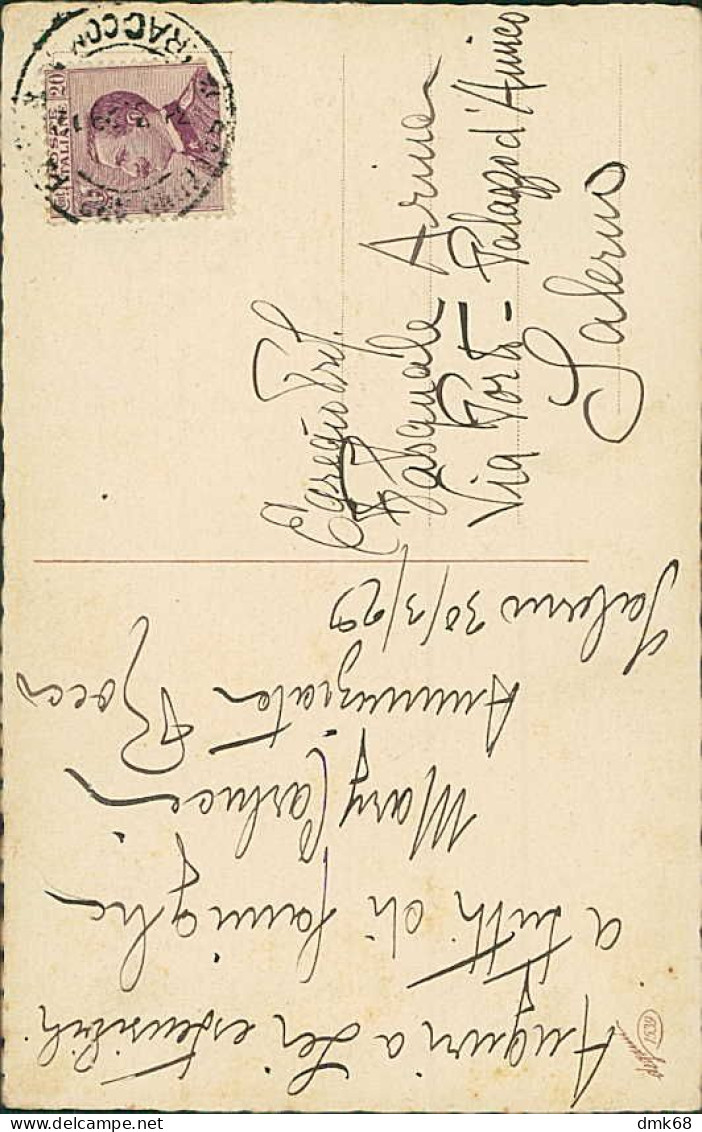 Auguri a Lei estensibili
a tutti di famiglia
Mary Carlucci
Annunziata Rocco
Salerno 30/3/29
Egregio Prof.
Pasquale Arina
Via Porto - Palazzo d'Amico
Salerno
POSTE ITALIANE
20
RACCOM
dmk68